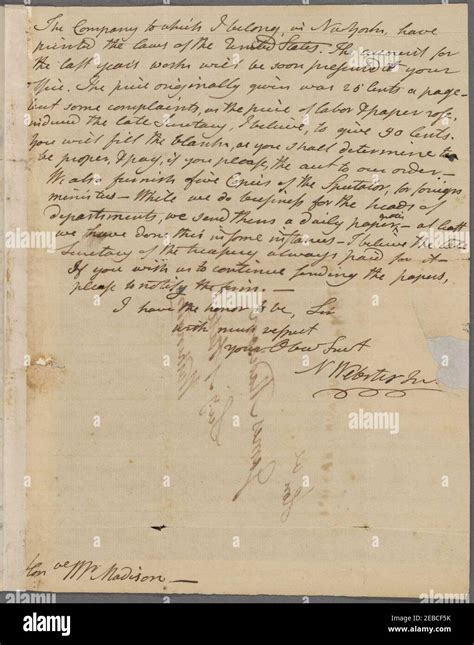 The Company to which I belong, in N. York, have
printed the laws of the United States. The account for
the last years works will be soon presented at your
office. The price originally given was 25 cents a page—
but some complaints, as the price of labor & paper rose,
induced the late Secretary, I believe, to give 30 cents.
You will fill the blanks, as you shall determine to
be proper, & pay, if you please, the amt to our order—
We also furnish five Copies of the Spectator, for foreign
ministers— While we do business for the heads of
departments, we send them a daily paper gratis— at least
we have done this in some instances— I believe the late
Secretary of the treasury always paid for it—
If you wish us to continue sending the papers,
please to notify the firm.—
I have the honor to be, Sir
with much respect
your Obed Servt
N Webster Jun
Madison—
alamy
Image ID: 2EBCF5K
www.alamy.com